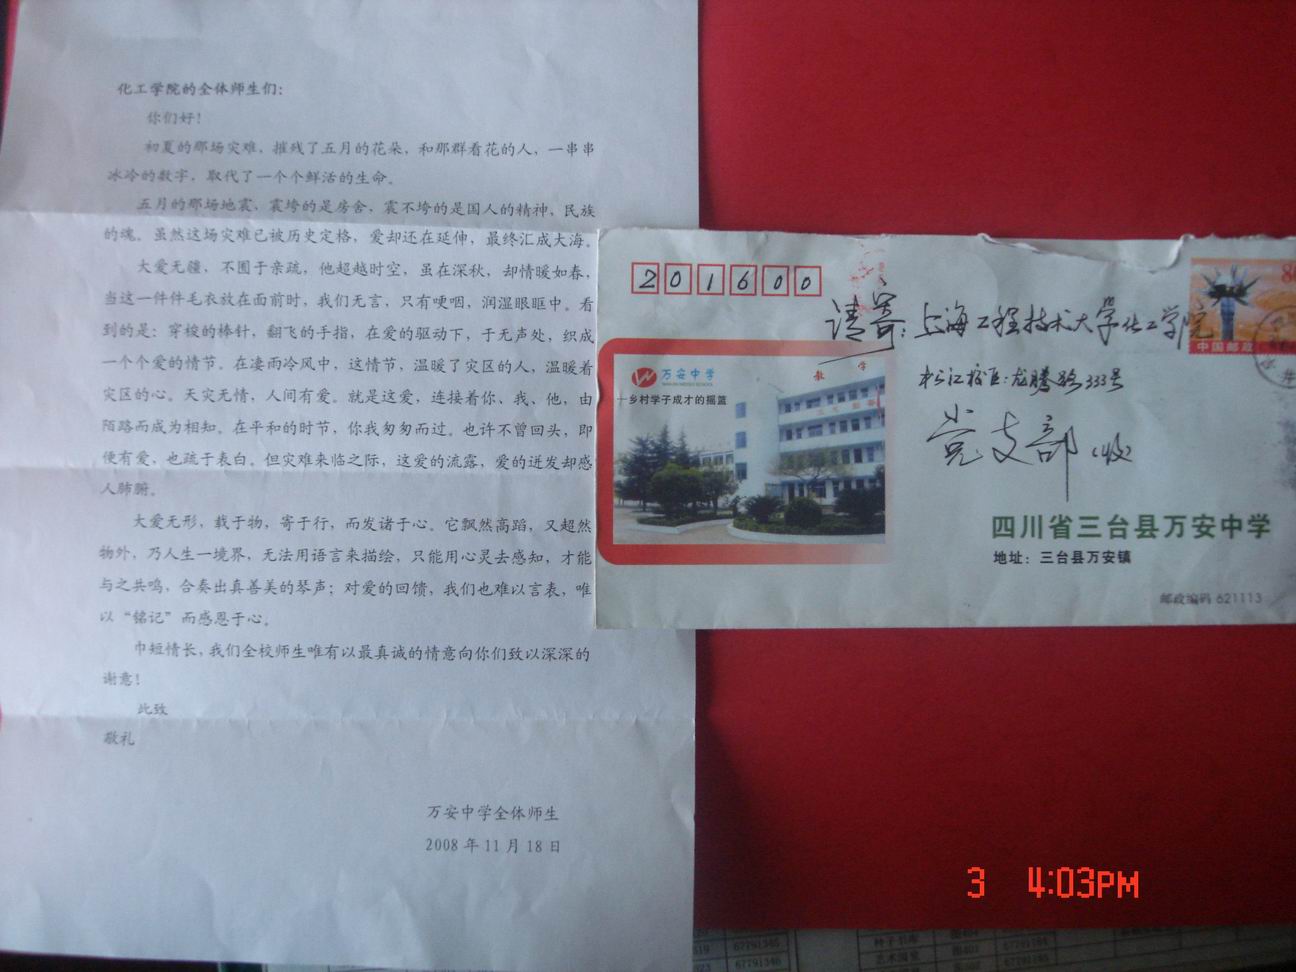 化工学院的全体师生们：
你们好！
初夏的那场灾难，摧残了五月的花朵，和那群看花的人，一串串
冰冷的数字，取代了一个个鲜活的生命。
五月的那场地震，震垮的是房舍，震不垮的是国人的精神，民族
的魂。虽然这场灾难已被历史定格，爱却还在延伸，最终汇成大海。
大爱无疆，不囿于亲疏，他超越时空，虽在深秋，却情暖如春，
当这一件件毛衣放在面前时，我们无言，只有哽咽，润湿眼眶中。看
到的是：穿梭的棒针，翻飞的手指，在爱的驱动下，于无声处，织成
一个个爱的情节。在凄雨冷风中，这情节，温暖了灾区的人，温暖着
灾区的心。天灾无情，人间有爱。就是这爱，连接着你、我、他，由
陌路而成为相知。在平和的时节，你我匆匆而过。也许不曾回头，即
便有爱，也疏于表白。但灾难来临之际，这爱的流露，爱的迸发却感
人肺腑。
大爱无形，载于物，寄于行，而发诸于心。它飘然高蹈，又超然
物外，乃人生一境界，无法用语言来描绘，只能用心灵去感知，才能
与之共鸣，合奏出真善美的琴声；对爱的回馈，我们也难以言表，唯
以“铭记”而感恩于心。
巾短情长，我们全校师生唯有以最真诚的情意向你们致以深深的
谢意！
此致
敬礼
万安中学全体师生
2008 年 11 月 18 日
201600
请寄：上海工程技术大学化工学院
松江校区：龙腾路333号
党支部（收）
中国邮政
80
万安中学
乡村学子成才的摇篮
教 学
四川省三台县万安中学
地址：三台县万安镇
邮政编码 621113
3 4:03PM
67791345
67791346
67791164